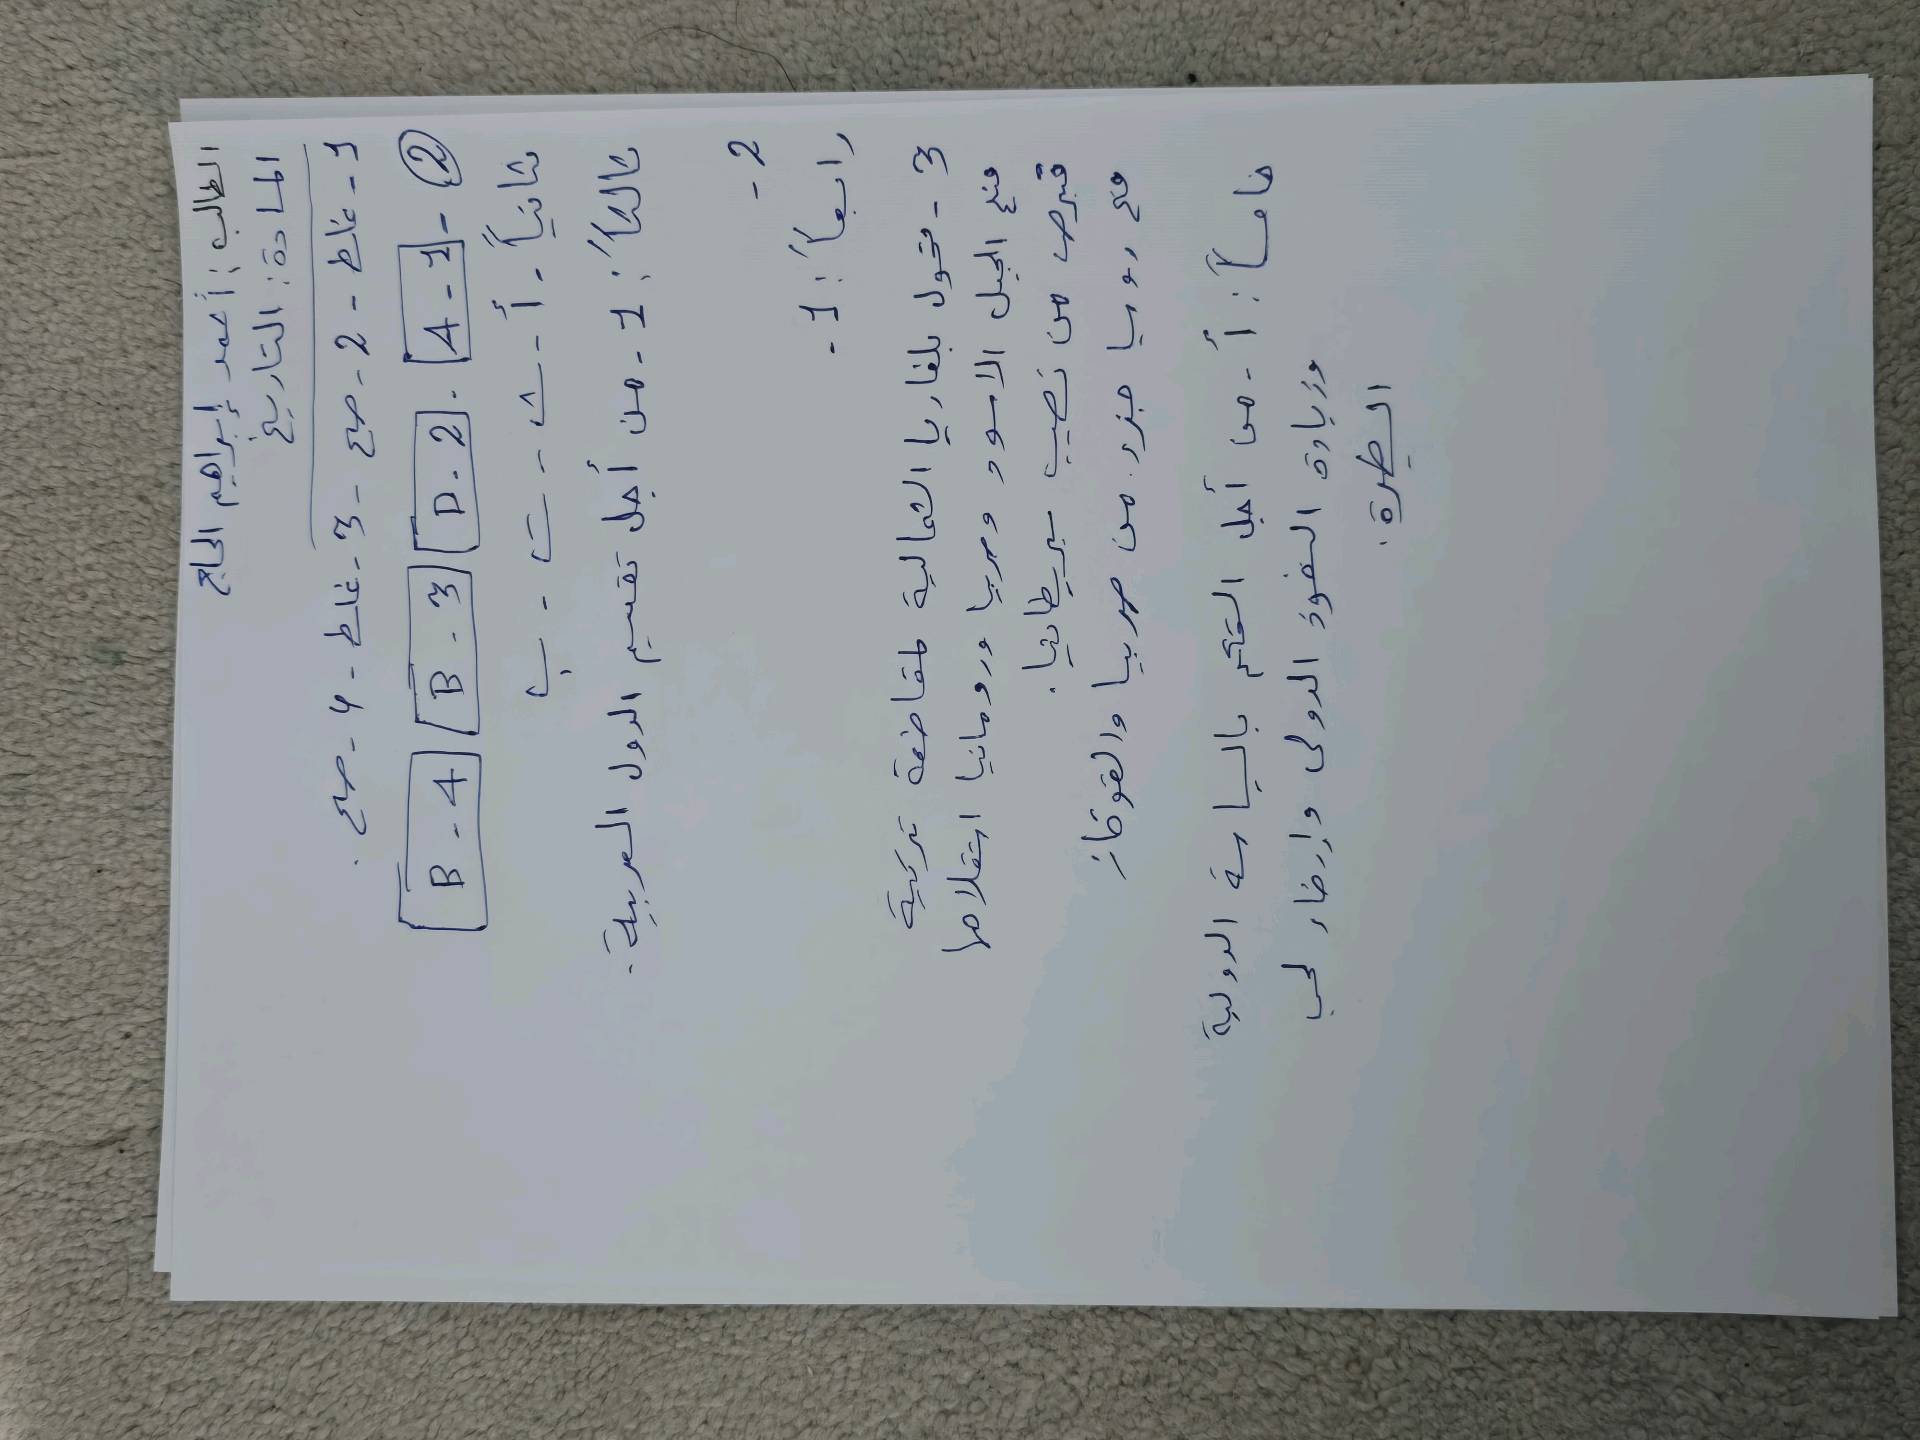 الطالب: أحمد إبراهيم الحاج
المادة: التاريخ
1 - غلط - 2 - صح - 3 - غلط - 4 - صح.
② - 1 - A 2 - D. 3 - B 4 - B
ثانياً - أ - ث - ت - ب
ثالثاً: 1 - من أجل تقسيم الدول العربية.
2 -
رابعاً: 1 -
3 - تحول بلغاريا الشمالية لمقاطعة تركية
منح الجبل الاسود وصربيا ورومانيا استقلالاً
قبرص من نصيب بريطانيا.
منح روسيا جزر من صربيا والقوقاز
خامساً: أ - من أجل التحكم بالسياسة الدولية
وزيادة النفوذ الدولي وإرضاء لحب
السيطرة.